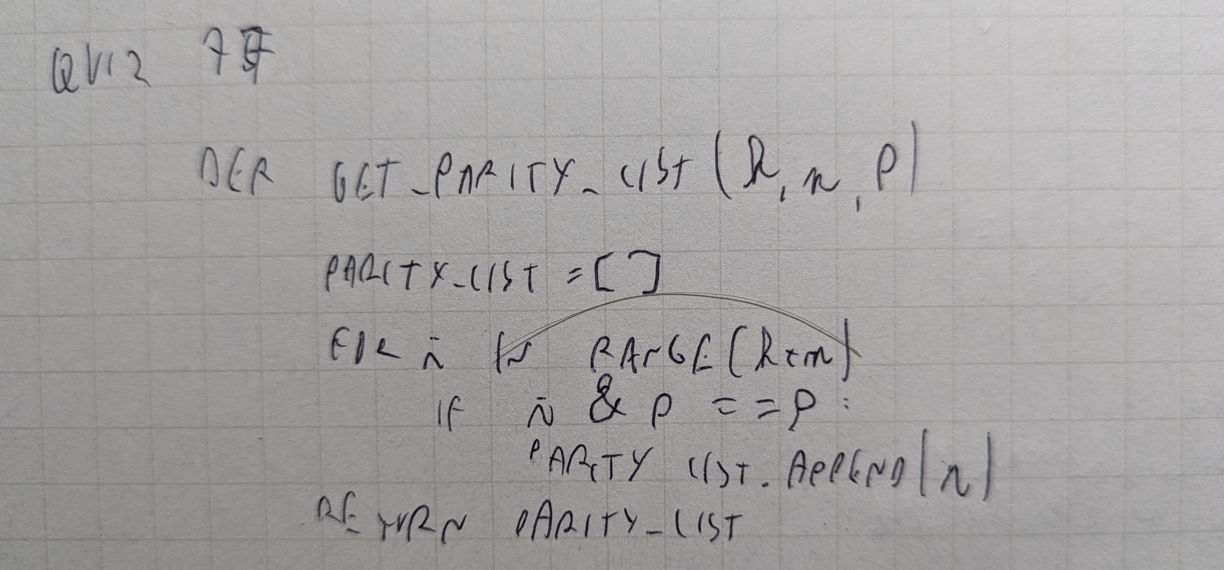 QUIZ 7
DEF GET_PARITY_LIST (k, n, p)
PARITY_LIST = [ ]
FOR i IN RANGE (k+n)
IF i & p == p :
PARITY LIST. APPEND (i)
RETURN PARITY_LIST